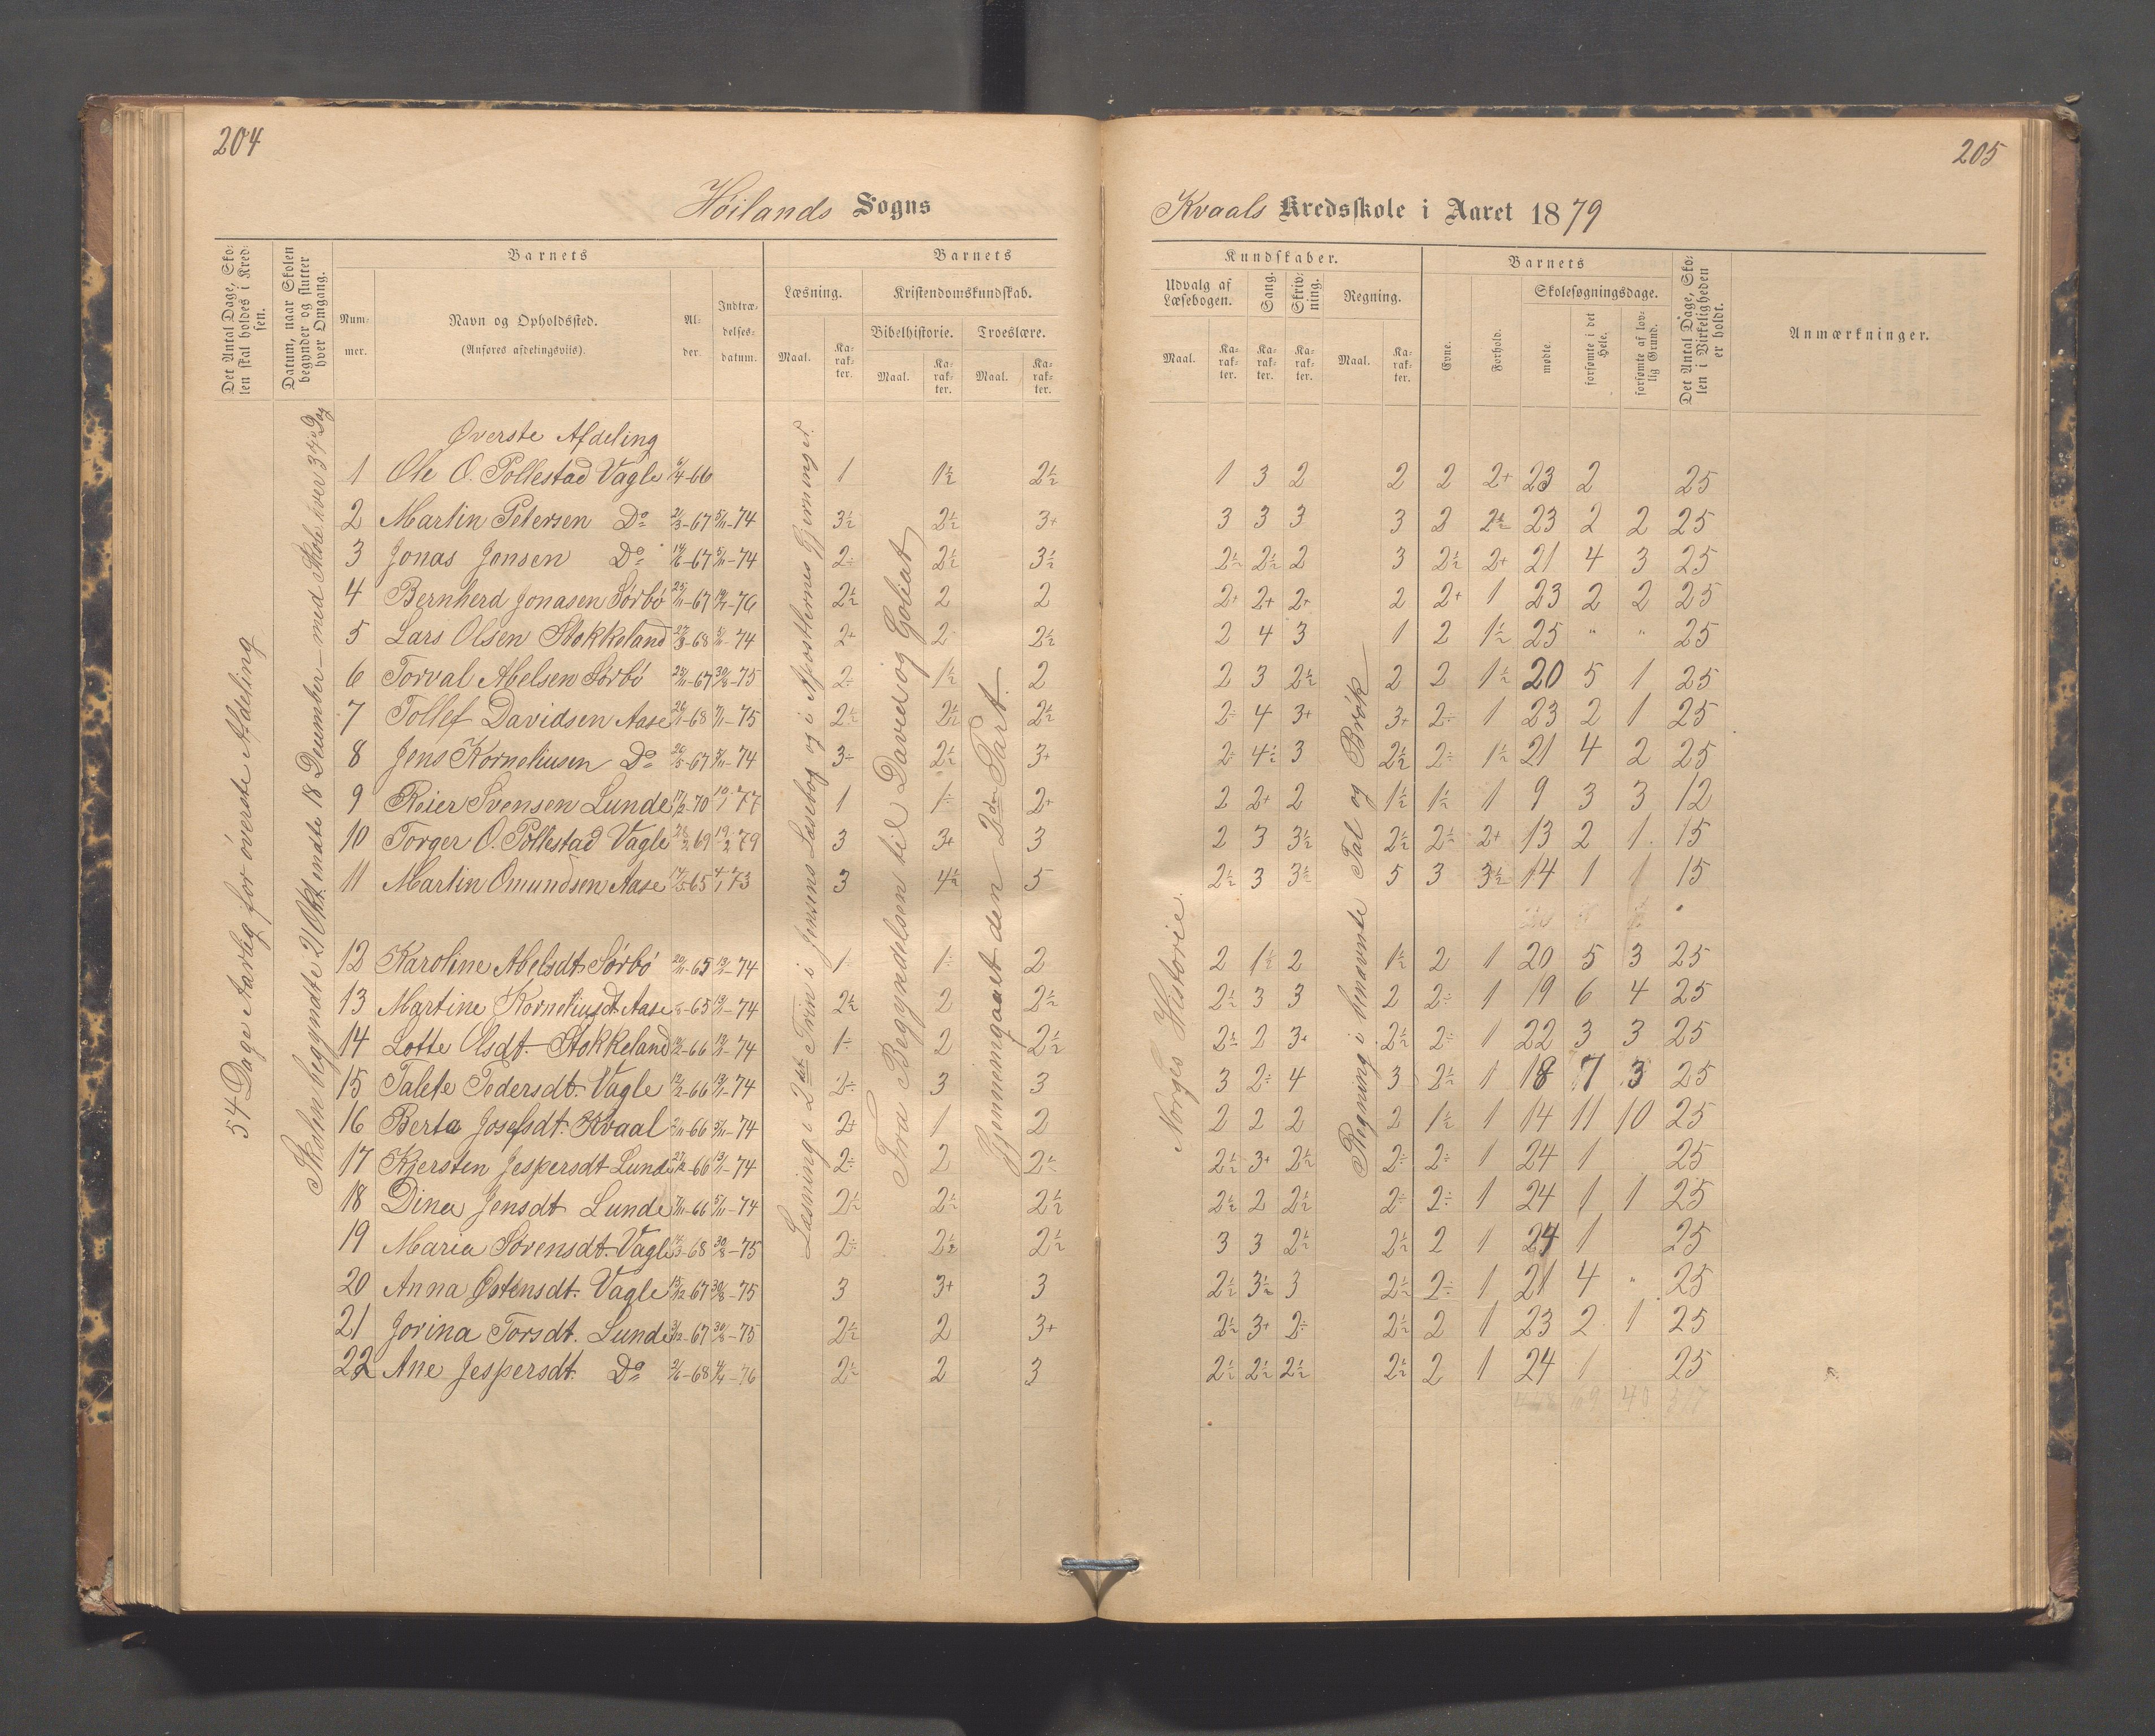 204
Høilands Sogns
Det Antal Dage, Sko-
len skal holdes i Kred-
sen.
Datum, naar Skolen
begynder og slutter
hver Omgang.
Barnets
Num-
mer.
Navn og Opholdssted.
(Anføres afdelingsviis).
Al-
der.
Indtræ-
delses-
datum.
Barnets
Læsning.
Maal.
Ka-
rak-
ter.
Kristendomskundskab.
Bibelhistorie.
Maal.
Ka-
rak-
ter.
Troeslære.
Maal.
Ka-
rak-
ter.
54 Dage Aarlig for överste Afdeling
Skolen begyndte 21 Okt. endte 18 December – med Skole hver Dag
Læsning i 2det Trin i Jensens Læsebog og i Apostlernes Gjerninger.
Fra Begyndelsen til David og Goliat
Gjennemgaaet den 2den Part.
Øverste Afdeling
1 Ole O. Pollestad Vagle 1 1½ 2½
2 Martin Petersen Do 67 5/11-74 3½ 2½ 3+
3 Jonas Jonsen Do 67 5/11-74 2÷ 2½ 3½
4 Bernherd Jonasen Sørbö 67 76 2½ 2 2
5 Lars Olsen Stokkeland 68 74 2+ 2 2½
6 Torval Abelsen Sørbö 67 30/8-75 2÷ 1½ 2
7 Tollef Davidsen Aase 68 75 2½ 2½ 2½
8 Jens Korneliusen Do 67 5/11-74 3÷ 2½ 3+
9 Reier Svensen Lunde 70 77 1 1÷ 2+
10 Torger O. Pollestad Vagle 69 79 3 3+ 3
11 Martin Omundsen Aase 65 73 3 4½ 5
12 Karoline Abelsdt. Sørbö 65 74 1÷ 1÷ 2
13 Martine Korneliusdt. Aase 65 74 2½ 2 2½
14 Lotte Olsdt. Stokkeland 66 74 1÷ 2 2½
15 Talete Pedersdt. Vagle 66 74 2÷ 3 3
16 Berta Josefsdt. Kvaal 66 5/11-74 2+ 1 2
17 Kjersten Jespersdt Lunde 66 74 2÷ 2 2½
18 Dina Jensdt Lunde 66 5/11-74 2½ 2½ 2½
19 Maria Sørensdt. Vagle 68 30/8-75 2÷ 2½ 2½
20 Anna Østensdt. Vagle 67 30/8-75 3 3+ 3
21 Jorina Torsdt. Lunde 67 30/8-75 2½ 2 3+
22 Ane Jespersdt. Do 68 76 2½ 2 3
205
Kvaals Kredsskole i Aaret 1879
Kundskaber.
Udvalg af
Læsebogen.
Maal.
Ka-
rak-
ter.
Sang.
Ka-
rak-
ter.
Skriv-
ning.
Ka-
rak-
ter.
Regning.
Maal.
Ka-
rak-
ter.
Barnets
Evne.
Forhold.
Skolesøgningsdage.
mødte.
forsømte i det
Hele.
forsømte af lov-
lig Grund.
Det Antal Dage, Sko-
len i Virkeligheden
er holdt.
Anmærkninger.
Norges Historie
Regning i benævnte Tal og Brök
1 3 2 2 2 2+ 23 2 25
3 3 3 3 3 2½ 23 2 2 25
2½ 2½ 2 3 2½ 2+ 21 4 3 25
2+ 2+ 2+ 2 2+ 1 23 2 2 25
2 4 3 1 2 1½ 25 " " 25
2 3 2½ 2 2 1½ 20 5 1 25
2÷ 4 3+ 3+ 2÷ 1 23 2 1 25
2÷ 4½ 3 2½ 2÷ 1½ 21 4 2 25
2 2+ 2 1½ 1½ 1 9 3 3 12
2 3 3½ 2½ 2½ 2+ 13 2 1 15
2½ 3 3½ 5 3 3½ 14 1 1 15
2 1½ 2 1½ 2 1 20 5 3 25
2½ 3 3 2 2÷ 1 19 6 4 25
2½ 2 3+ 2½ 2÷ 1 22 3 3 25
3 2÷ 4 3 2½ 1 18 7 3 25
2 2 2 2 1½ 1 14 11 10 25
2½ 3+ 2½ 2÷ 2÷ 1 24 1 25
2½ 2 2½ 2÷ 2÷ 1 24 1 1 25
3 3 2½ 2½ 2 1 24 1 25
2½ 3½ 3 2½ 2÷ 1 21 4 " 25
2½ 3+ 2÷ 2½ 2 1 23 2 1 25
2½ 2½ 2½ 2½ 2 1 24 1 25